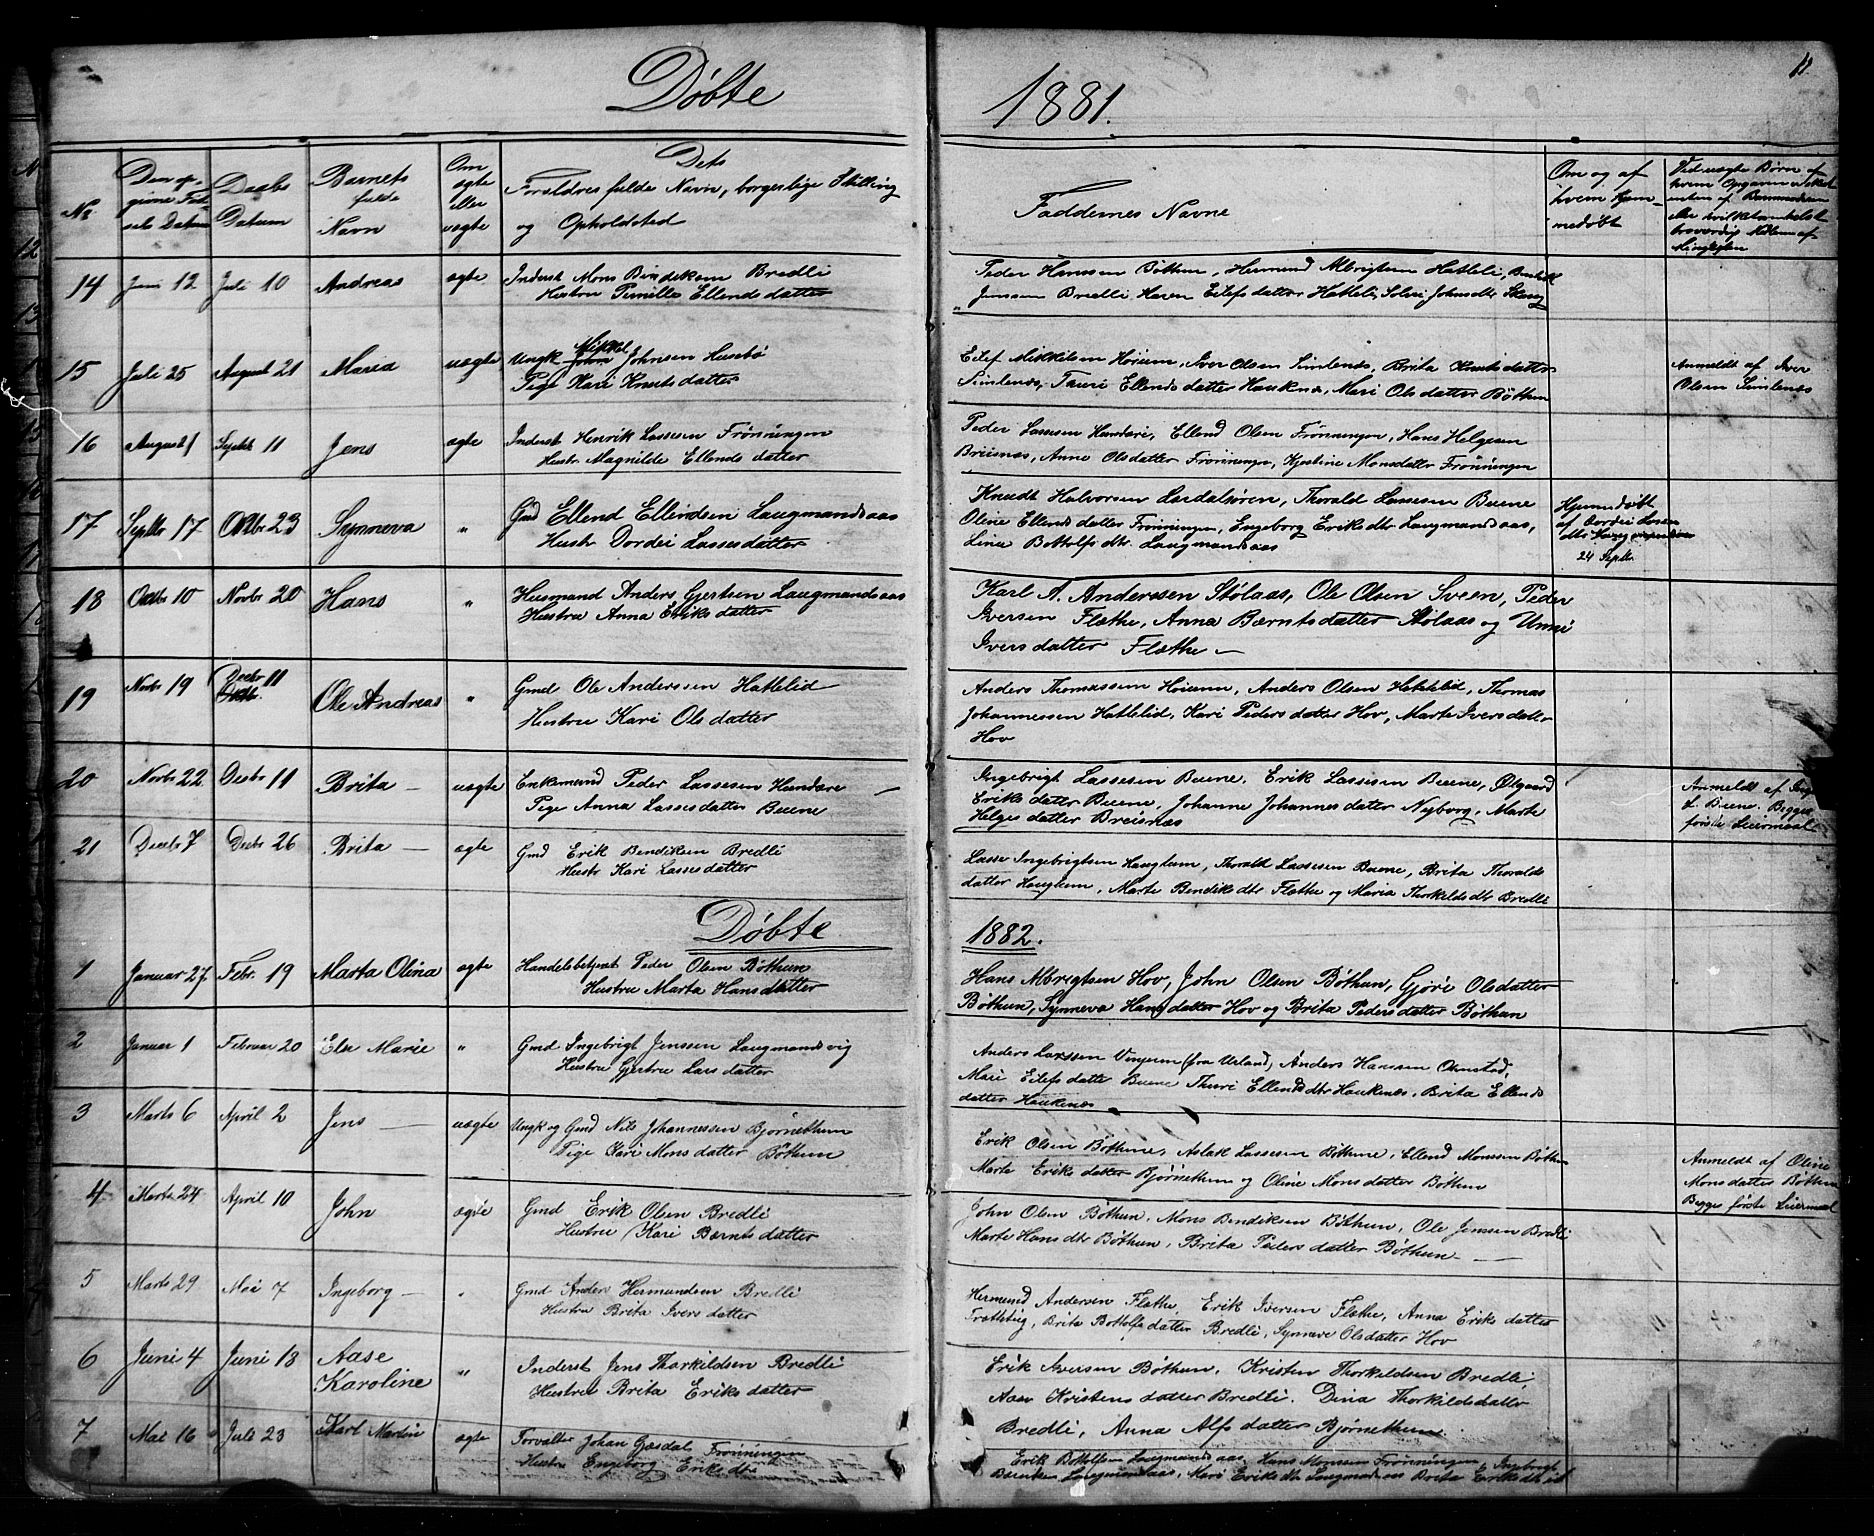 Døbte
1881.
No
Den op-
givne Fød-
sels Datum
Daabs
Datum
Barnets
fulde
Navn
Om
ægte
eller
uægte
Dets
Forældres fulde Navn, borgerlige Stilling
og Opholdsted
Faddernes Navne
Om og af
hvem hjem-
medøbt
Ved uægte Børn af
hvem
14 Juni 12 Juli 10 Andreas ægte Inderst Mons Bendiksen Bredli
Hustru Pernille Ellendsdatter
Peder Hanssen Bøthun, Hermund Albrigtsen Hatteli, Bendik
Jenssen Bredli, Hatteli, Johnsdtr
15 Juli 25 August 21 Maria uægte Ungk Mikkel Johnsen Husebø
Pige Kari Knutsdatter
Eilef Mikkelsen Høium, Iver Olsen Simlenæs, Brita Knutsdatter
Simlenæs, Tauri Ellendsdatter Haukenæs, Mari Olsdatter Bøthun
Anmeldt af Iver
Olsen Simlenæs
16 August 1 Septbr 11 Jens ægte Inderst Henrik Lassesen Frønningen
Hustr Magnilde Ellendsdatter
Peder Lassesen Hundere, Ellend Olsen Frønningen, Hans Helgesen
Breisnæs, Anne Olsdatter Frønningen, Kjestine Monsdatter Frønningen
17 Septbr 17 Octbr 23 Synneva " Gmd Ellend Ellendsen Laugmandsaas
Hustr Dordei Lassesdatter
Knudt Halvorsen Lærdalsøren, Thorald Lassesen Buene
Oline Ellendsdatter Frønningen, Engeborg Eriksdtr Laugmandsaas,
Lina Bottolfsdtr. Laugmandsaas
Hjemmedøbt
af Dordei
24 Septbr.
18 Octbr 10 Novbr 20 Hans " Husmand Anders Gjertsen Laugmandsaas
Hustru Anna Eriksdatter
Karl A. Anderssen Stølaas, Ole Olsen Sveen, Peder
Iversen Flæthe, Anna Bærntsdatter Stølaas og Unni
Iversdatter Flæthe —
19 Novbr 19 Decbr 11 Ole Andreas " Gmd Ole Anderssen Hattelid
Hustru Kari Olsdatter
Anders Thomassen Høium, Anders Olsen Hattelid, Thomas
Johannessen Hattelid, Kari Pedersdatter Hov, Marte Iversdatter
Hov
20 Novbr 22 Decbr 11 Brita — uægte Enkemand Peder Lassesen Hundere —
Pige Anna Lassesdatter Buene
Ingebrigt Lassesen Buene, Erik Lassesen Buene, Olgaard
Eriksdatter Buene, Johanne Johannesdatter Nyborg, Marte
Helgesdatter Breisnæs
Anmeldt af
L. Buene. Begges
første Leiermaal
21 Decbr 7 Decbr 26 Brita — ægte Gmd Erik Bendiksen Bredli
Hustr Kari Lassesdatter
Lasse Ingebrigtsen Haugtun, Thorald Lassesen Buene, Brita Thoralds
datter Haugtun, Marte Bendiksdtr Flæthe og Maria Thorkildsdtr Bredli
Døbte
1882.
1 Januar 27 Febr. 19 Marta Olina ægte Handelsbetjent Peder Olsen Bøthun
Hustru Marta Hansdatter
Hans Albrigtsen Hov, John Olsen Bøthun, Gjøri Olsdatter
Bøthun, Synneva Hansdatter Hov og Brita Pedersdatter Bøthun
2 Januar 1 Februar 20 Else Marie " Gmd Ingebrigt Jenssen Laugmandsvig
Hustru Gjertru Larsdatter
Anders Larssen Vinjum (fra Urland), Anders Hanssen Ormstad,
Mari Eilefsdatter Buene Thuri Ellendsdtr Haukenæs, Brita Ellends
datter Haukenæs
3 Marts 6 April 2 Jens — uægte Ungk og Gmd Nils Johannessen Bjørnethun
Pige Kari Monsdatter Bøthun
Erik Olsen Bøthun, Aslak Lassesen Bøthun, Ellend Monssen Bøthun
Marte Eriksdatter Bjørnethun og Oline Monsdatter Bøthun
Anmeldt af Oline
Monsdatter Bøthun
Begges første Leiermaal
4 Marts 24 April 10 John ægte Gmd Erik Olsen Bredli
Hustru Kari Bærntsdatter
John Olsen Bøthun, Mons Bendiksen Bøthun, Ole Jenssen Bredli
Marte Hansdtr Bøthun, Brita Pedersdatter Bøthun —
5 Marts 29 Mai 7 Ingeborg — " Gmd Anders Hermundsen Bredli
Hustru Brita Iversdatter
Hermund Andersen Flæthe, Erik Iversen Flæthe, Anna Eriksdatter
Brita Bottolfsdatter Bredli, Synneve Olsdatter Hov
6 Juni 4 Juni 18 Aase
Karoline " Inderst Jens Thorkildsen Bredli
Hustru Brita Eriksdatter
Erik Iversen Bøthun, Kristen Thorkildsen Bredli,
Aase Kristensdatter Bredli. Dina Thorkildsdatter
Bredli, Anna Alfsdatter Bjørnethun.
7 Mai 16 Juli 23 Karl Martin ægte Forvalter Johan Gjesdal Frønningen
Hustru Engeborg Eriksdtr
Erik Bottolfsen Laugmandsaas, Hans Monssen Frønningen, Ingebrigt
Laugmandsaas, Mari Eriksdtr Brita